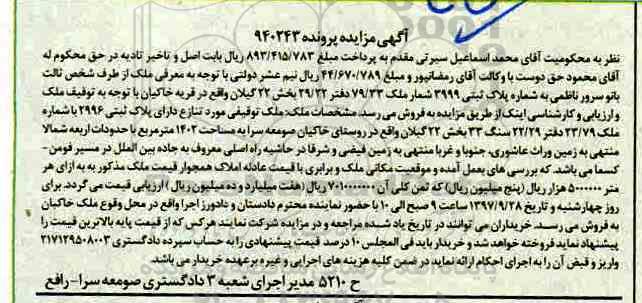 آگهی مزایده پرونده ۹۴۰۲۴۳
نظر به محکومیت آقای محمد اسماعیل سیرتی مقدم به پرداخت مبلغ ۸۹۳/۴۱۵/۷۸۳ ریال بابت اصل و تاخیر تادیه در حق محکوم له
آقای محمود حق دوست با وکالت آقای رمضانپور و مبلغ ۴۴/۶۷۰/۷۸۹ ریال نیم عشر دولتی با توجه به معرفی ملک از طرف شخص ثالث
بانو سرور ناظمی به شماره پلاک ثبتی ۳۹۹۹ شمار ملک ۷۹/۳۳ دفتر ۲۹/۲۲ بخش ۲۲ گیلان واقع در قریه خاکیان با توجه به توقیف ملک
و ارزیابی و کارشناسی اینک از طریق مزایده به فروش می رسد. مشخصات ملک: ملک توقیفی مورد تنازع دارای پلاک ثبتی ۲۹۹۶ با شماره
ملک ۲۳/۷۹ دفتر ۲۲/۲۹ سنگ ۳۳ بخش ۲۲ گیلان واقع در روستای خاکیان صومعه سرا به مساحت ۱۴۰۲ مترمربع با حدودات اربعه شمالا
منتهی به زمین وراث عاشوری، جنوبا و غربا منتهی به زمین فیضی و شرقا در حاشیه راه اصلی معروف به جاده بین الملل در مسیر فومن -
کسما می باشد. که بررسی های بعمل آمده و موقعیت مکانی ملک و برابری با قیمت عادله املاک همجوار قیمت ملک مذکور به به ازای هر
متر ۵۰۰۰۰۰۰ هزار ریال (پنج میلیون ریال) که ثمن کلی آن ۷۰۱۰۰۰۰۰۰۰ ریال (هفت میلیارد و ده میلیون ریال) ارزیابی قیمت می گردد. برای
روز چهارشنبه و تاریخ ۱۳۹۷/۹/۲۸ ساعت ۹ صبح الی ۱۰ با حضور نماینده محترم دادستان و دادورز اجرا واقع در محل وقوع ملک خاکیان
به فروش می رسد. خریداران می توانند در تاریخ یاد شده مراجعه و در مزایده شرکت نمایند هرکس که از قیمت پایه بالاترین قیمت را
پیشنهاد نماید فروخته خواهد شد و خریدار باید فی المجلس ۱۰ درصد قیمت پیشنهادی را به حساب سپرده دادگستری ۲۱۷۱۲۹۵۰۸۰۰۳
واریز و قبض آن را به اجرای احکام ارائه نماید در ضمن کلیه هزینه های اجرایی و غیره برعهده خریدار می باشد.
ح ۵۲۱۰ مدیر اجرای شعبه ۳ دادگستری صومعه سرا - رافع